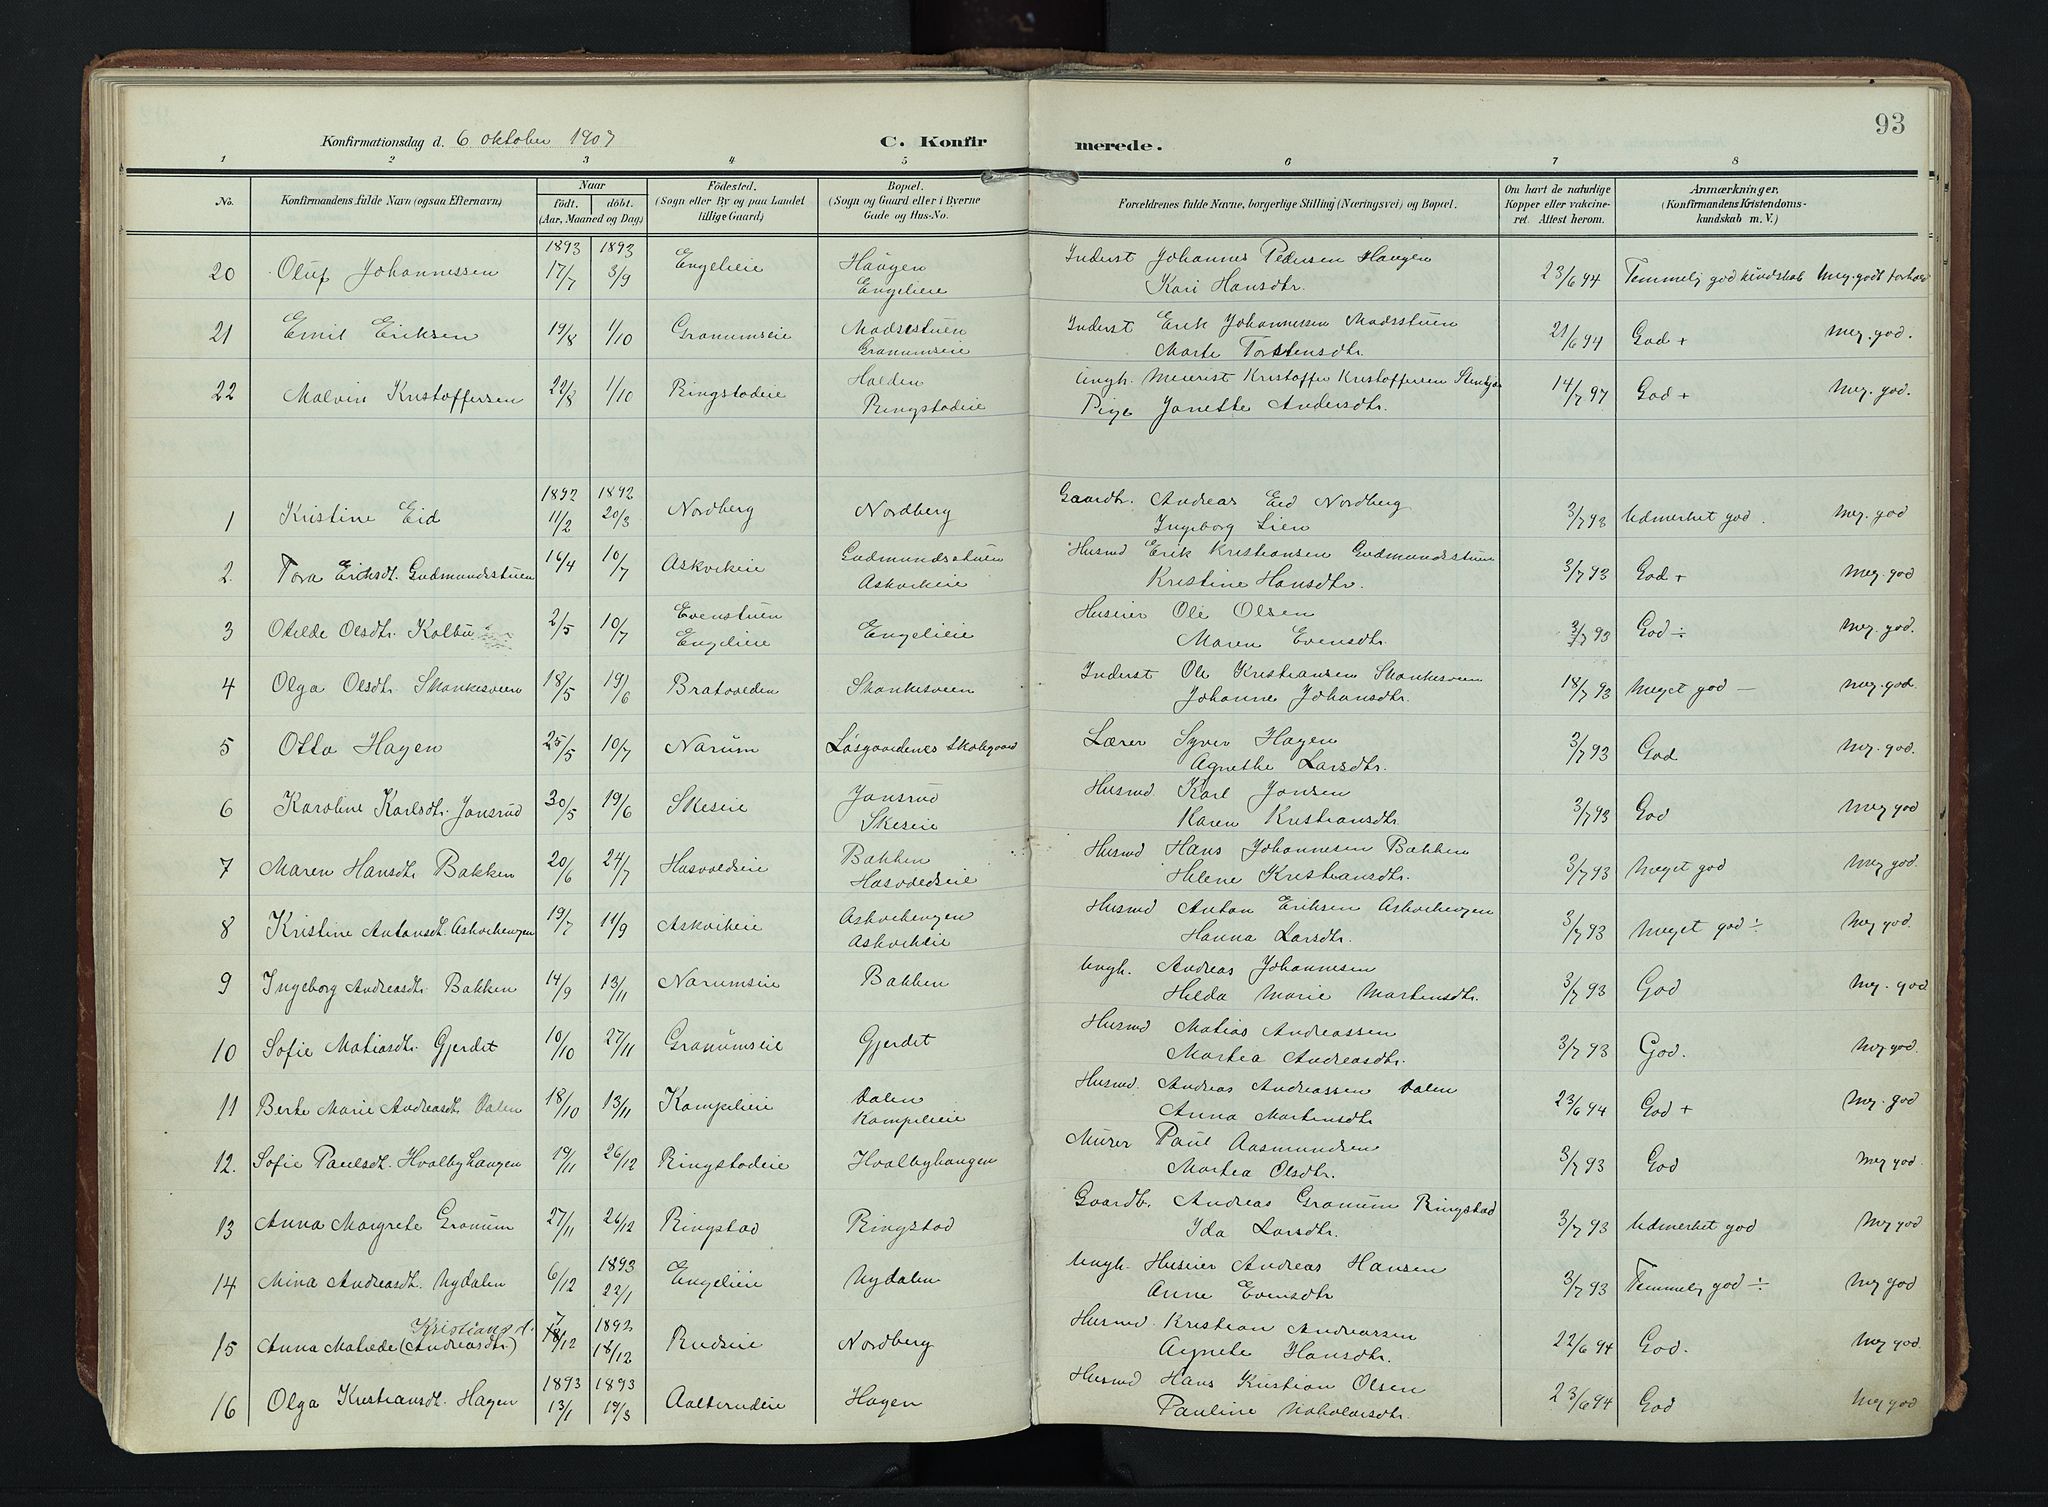 93
Konfirmationsdag d. 6 oktober 1907 C. Konfirmerede.
1 2 3 4 5 6 7 8
No. Konfirmandens fulde Navn (ogsaa Efternavn) Naar födt. döbt. (Aar, Maaned og Dag) Födested. (Sogn eller By og paa Landet tillige Gaard) Bopæl. (Sogn og Gaard eller i Byerne Gade og Hus-No. Forældrenes fulde Navne, borgerlige Stilling (Næringsvei) og Bopæl. Om havt de naturlige Kopper eller vakcineret. Attest herom. Anmærkninger. (Konfirmandens Kristendomskundskab m. V.)
1893 1893
20 Oluf Johannessen 17/7 3/9 Engelieie Haugen Inderst Johannes Pedersen Haugen 23/6 94 Temmelig god kundskab Meg. godt forhold
Engelieie Kari Hansdtr.
21 Emil Eriksen 19/8 1/10 Granumseie Madsestuen Inderst Erik Johannessen Madsstuen 21/6 94 God + Meg. god.
Granumseie Marte Torstensdtr.
22 Malvin Kristoffersen 22/8 1/10 Ringstadeie Halden Ungk. Meierist Kristoffer Kristoffersen 14/7 97 God + Meg. god.
Ringstadeie Pige Janette Andersdtr.
1892 1892
1 Kristine Eid 11/2 20/3 Nordberg Nordberg Gaardbr. Andreas Eid Nordberg 3/7 93 Udmerket god. Meg. god
Ingeborg Lien
2. Tora Eriksdt. Gudmundsstuen 16/4 10/7 Askvikeie Gudmundsstuen Husmd Erik Kristiansen Gudmundsstuen 3/7 93 God + Meg. god
Askvikeie Kristine Hansdtr.
3 Otilde Olsdtr. Kolbu 2/5 10/7 Evenstuen Engelieie Huseier Ole Olsen 3/7 93 God ÷ Meg. god.
Engelieie Maren Evensdtr.
4 Olga Olsdtr Skankesveen 18/5 19/6 Bratvolden Skankesveen Inderst Ole Kristiansen Skankesveen 18/7 93 Meget god – Meg. god.
Johanne Johansdtr.
5 Otto Hagen 25/5 10/7 Narum Løsgaardenes Skolegaard Lærer Syver Hagen 3/7 93 God Meg. god.
Agnethe Larsdtr.
6 Karoline Karlsdtr. Jansrud 30/5 19/6 Skeseie Jansrud Husmd Karl Jansen 3/7 93 God Meg god
Skeseie Karen Kristiansdtr.
7 Maren Hansdtr Bakken 20/6 24/7 Hasvoldseie Bakken Husmd Hans Johannesen Bakken 3/7 93 Meget god Meg god
Hasvoldseie Helene Kristiansdtr.
8 Kristine Antonsdt. Askvehengen 19/7 11/9 Askvikeie Askvehengen Husmd Anton Eriksen Askvehengen 3/7 93 Meget god ÷ Meg god.
Askvikeie Hanna Larsdtr.
9 Ingeborg Andreasdtr. Bakken 14/9 13/11 Narumseie Bakken Ungk. Andreas Johannesen 3/7 93 God Meg. god
Hilda Marie Martensdtr.
10 Sofie Matiasdtr. Gjerdet 10/10 27/11 Granumseie Gjerdet Husmd Matias Andreassen 3/7 93 God. Meg god.
Martea Andreasdtr.
11 Berte Marie Andreasdt. Dalen 18/10 13/11 Kampelieie Dalen Husmd. Andreas Andreassen Dalen 23/6 94 God + Meg. god
Kampelieie Anna Martensdtr
12. Sofie Paulsdt. Hvalbyhaugen 19/11 26/12 Ringstadeie Hvalbyhaugen Murer Paul Aasmundsen 3/7 93 God Meg god.
Martea Olsdtr.
13 Anna Margrete Granum 27/11 26/12 Ringstad Ringstad Gaardb. Andreas Granum Ringstad 3/7 93 Udmerket god Meg god
Ida Larsdtr.
1893
14 Mina Andreasdt. Nydalen 6/12 22/1 Engelieie Nydalen Ungk. Huseier Andreas Hansen 3/7 93 Temmelig god ÷ Meg god
Anne Evensdtr
Kristiansdt. 7 1892
15 Anna Matilde (Andreasdtr) 18/12 18/12 Rudseie Nordberg Husmd. Kristian Andreassen 22/6 94 God. Meg god
Agnete Hansdtr.
1893 1893
16 Olga Kristiansdt. Hagen 13/1 19/3 Aalterudeie Hagen Husmd Hans Kristian Olsen 23/6 94 God Meg god
Pauline